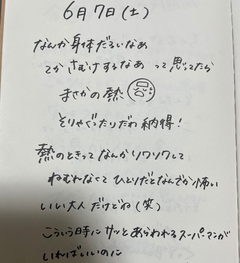 6月7日(土)
なんか身体だるいなぁ
てか さむけするなぁ って思ってたら
まさかの熱
そりゃぐったりだわ 納得!
熱のときってなんかソワソワして
ねむれなくて ひとりだとなんだか怖い
いい大人だけどね(笑)
こういう時に サッとあらわれるスーパーマンが
いればいいのに